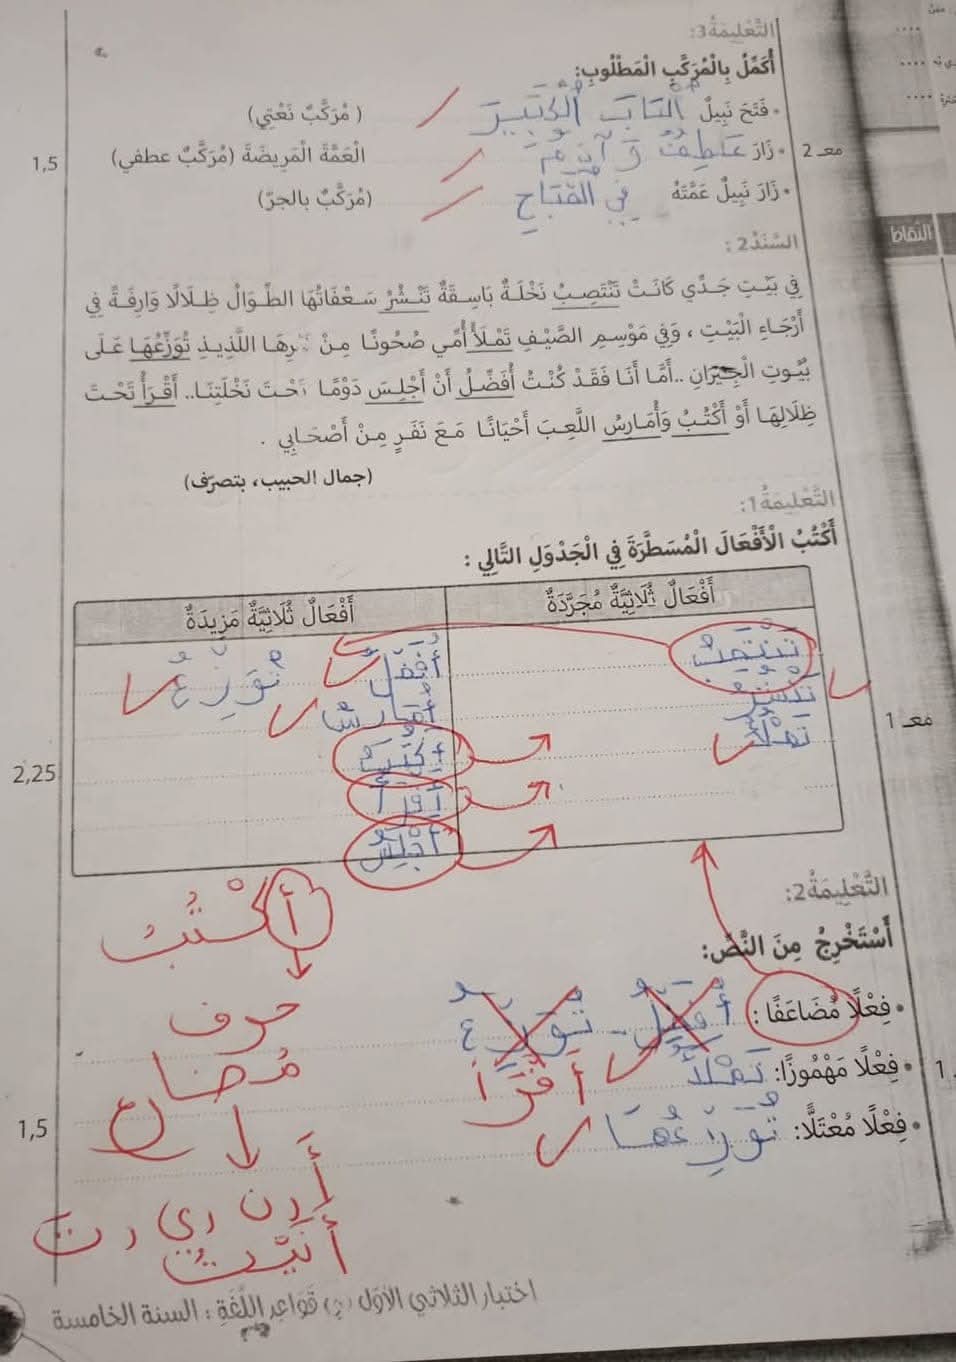 التَّعْلِيمَةُ3:
أُكَمِّلُ بِالْمُرَكَّبِ الْمَطْلُوبِ:
• فَتَحَ نَبِيلٌ الْبَابَ الْكَبِيرَ (مُرَكَّبٌ نَعْتِي)
معـ 2 • زَارَ عَاطِفٌ وَ آدَمُ الْعَمَّةَ الْمَرِيضَةَ (مُرَكَّبٌ عطفي) 1,5
• زَارَ نَبِيلٌ عَمَّتَهُ فِي الصَّبَاحِ (مُرَكَّبٌ بالجرّ)
النقاط
السَّنَدُ2 :
فِي بَيْتِ جَدِّي كَانَتْ تَنْتَصِبُ نَخْلَةٌ بَاسِقَةٌ تَنْشُرُ سَعْفَاتُهَا الطِّوَالُ ظِلَالًا وَارِفَةً فِي
أَرْجَاءِ الْبَيْتِ ، وَفِي مَوْسِمِ الصَّيْفِ تَمْلَأُ أُمِّي صُحُونًا مِنْ اللَّذِيذِ تُوَزِّعُهَا عَلَى
بُيُوتِ الْجِيرَانِ ..أَمَّا أَنَا فَقَدْ كُنْتُ أُفَضِّلُ أَنْ أَجْلِسَ دَوْمًا تَحْتَ نَخْلَتِنَا.. أَقْرَأُ تَحْتَ
ظِلَالِهَا أَوْ أَكْتُبُ وَأُمَارِسُ اللَّعِبَ أَحْيَانًا مَعَ نَفَرٍ مِنْ أَصْحَابِي .
(جمال الحبيب، بتصرّف)
التَّعْلِيمَةُ1:
أَكْتُبُ الْأَفْعَالَ الْمُسَطَّرَةَ فِي الْجَدْوَلِ التَّالِي :
أَفْعَالٌ ثُلَاثِيَّةٌ مُجَرَّدَةٌ أَفْعَالٌ ثُلَاثِيَّةٌ مَزِيدَةٌ
تَنْتَصِبُ أُفَضِّلُ تُوَزِّعُ
تَنْشُرُ أُمَارِسُ
تَمْلَأُ أَكْتُبُ
معـ 1 2,25
أَقْرَأُ
أَجْلِسُ
التَّعْلِيمَةُ2:
أَكْتُبُ
أَسْتَخْرِجُ مِنَ النَّصِّ:
• فِعْلًا مُضَاعَفًا: أُفَضِّلُ - تُوَزِّعُ
حرف
• فِعْلًا مَهْمُوزًا: تَمْلَأُ أَقْرَأُ 1
مُضارع
• فِعْلًا مُعْتَلًّا: تُوَزِّعُهَا 1,5
أَ، ن، ي، ت
أَنَيْتُ
اختبار الثلاثي الأوّل في قَوَاعِدِ اللُّغَةِ : السنة الخامسة